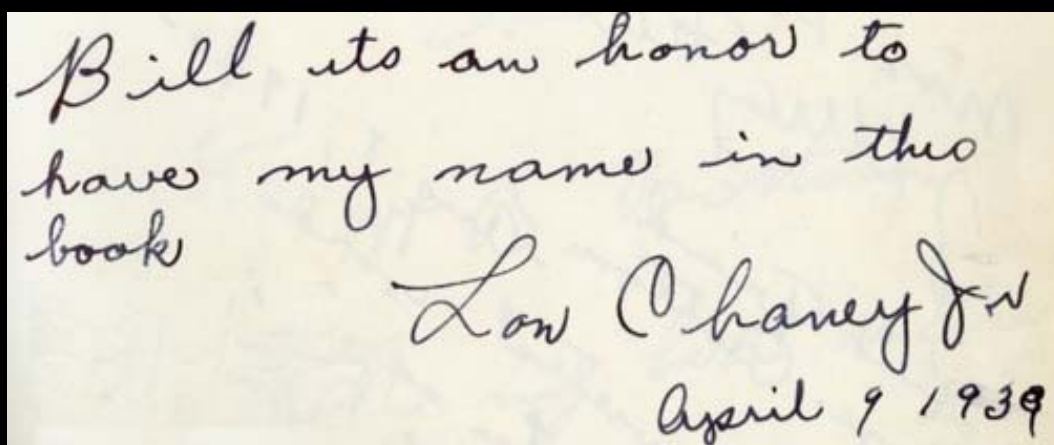 Bill its an honor to
have my name in this
book
Lon Chaney Jr
April 9 1939